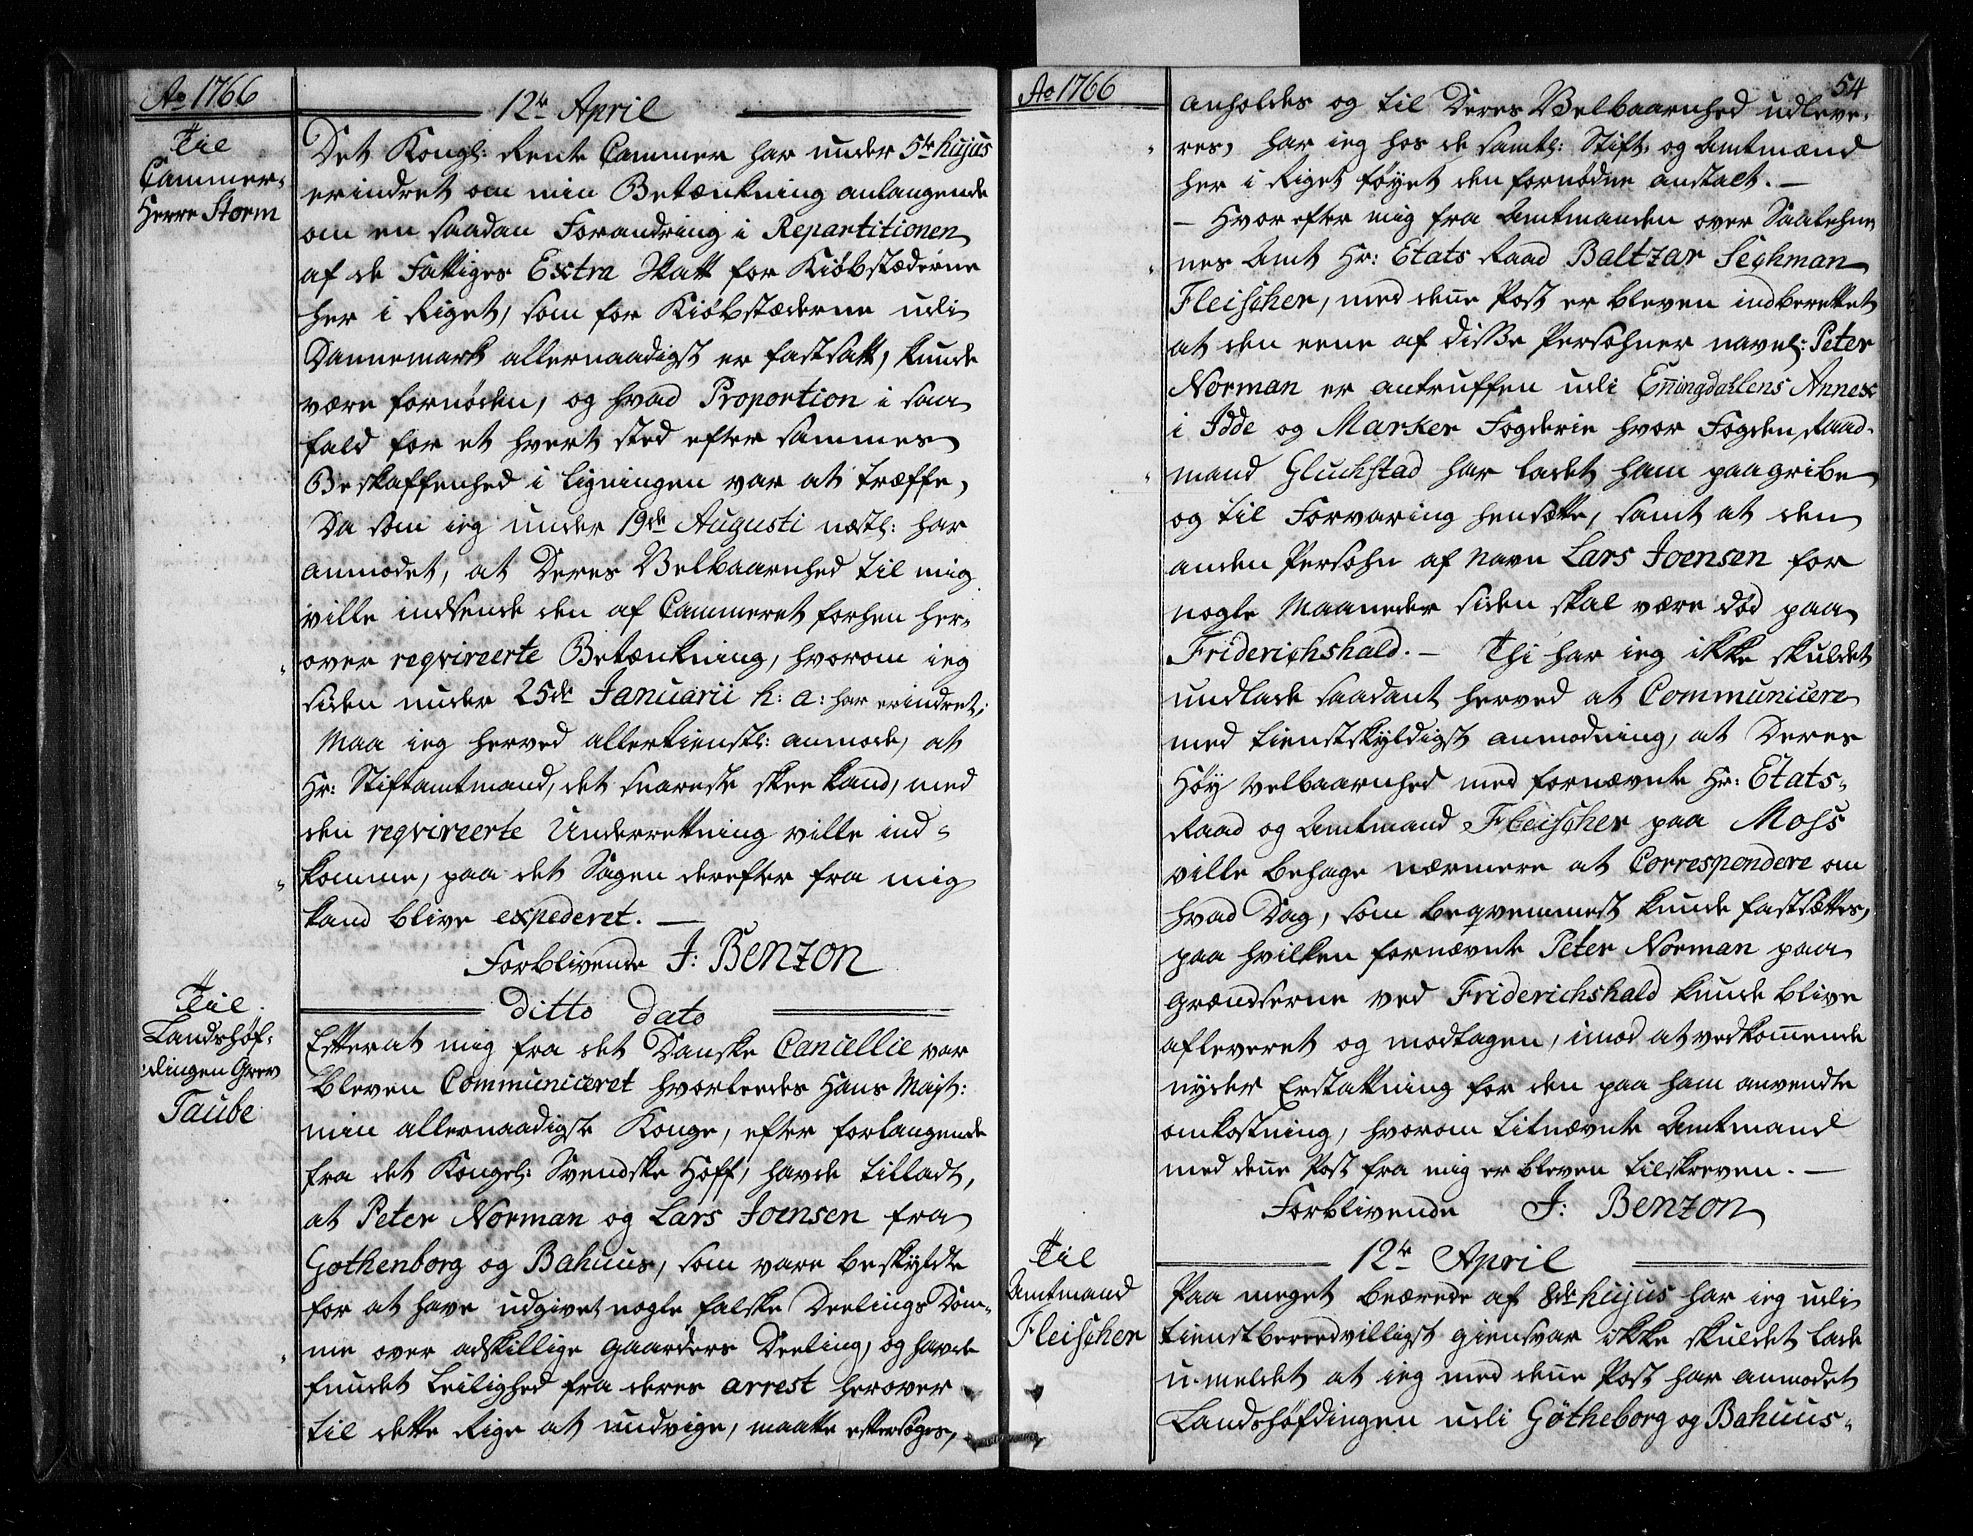 Ao 1766
12te April
Til
Cammer-
Herre Storm
Det Kongl: Rente Cammer har under 5te hujus
erindret om min Betænkning anlangende
om en saadan Forandring i Repartitionen
af de Fattiges Extra Skatt for Kiøbstæderne
her i Riget, som for Kiøbstæderne udi
Dannemark allernaadigst er fastsatt, kunde
være fornøden, og hvad Proportion i saa
fald for et hvert sted efter sammes
Beskaffenhed i Ligningen var at træffe,
Da som ieg under 19de Augusti næstl: har
anmodet, at Deres Velbaarnhed til mig
ville indsende den af Cammeret forhen her-
over reqvireerte Betænkning, hvorom ieg
siden under 25de Januarii h: a: har erindret;
Maa ieg herved allertienstl: anmode, at
Hr: Stiftamtmand, det snareste skee kand, med
den reqvireerte Underretning ville ind-
komme, paa det Sagen derefter fra mig
kand blive expederet. —
Forblivende J: Benzon
Til
Landshøf-
dingen Grev
Taube
ditto dato
Efterat mig fra det Danske Cancellie var
bleven Communiceret hvorleedes Hans Majst:
min allernaadigste Konge, efter forlangende
fra det Kongel: Svendske Hoff, havde tilladt,
at Peter Norman og Lars Joensen fra
Gothenborg og Bahuus, som vare beskyldte
for at have udgivet nogle falske Deelings Dom-
me over adskillige gaarders Deeling, og havde
fundet Leilighed fra deres arrest herover
til dette Rige at undvige, maatte eftersøges,
Ao 1766
54
anholdes og til Deres Velbaarnhed udleve-
res, har ieg hos de samtl: Stift- og Amtmænd
her i Riget føyet den fornødne anstalt. —
— Hvorefter mig fra Amtmanden over Smaalehne-
nes Amt Hr: Etats Raad Baltzar Sechman
Fleischer, med denne Post er bleven indberettet
at den eene af disse Persohner navnl: Peter
Norman er antruffen udi Enningdahlens Annex
i Idde og Marker Fogderie hvor Fogden Raad-
mand Gluckstad har ladet ham paagribe
og til Forvaring hensætte, samt at den
anden Persohn af Navn Lars Joensen for
nogle Maaneder siden skal være død paa
Friderichshald. — Thi har ieg ikke skuldet
undlade saadant herved at Communicere
med tienstskyldigst anmodning, at Deres
Høy Velbaarnhed med fornævnte Hr: Etats-
Raad og Amtmand Fleischer paa Moss
ville behage nærmere at Correspondere om
hvad Dag, som beqvemmest kunde fastsættes,
paa hvilken fornævnte Peter Norman paa
Grændserne ved Friderichshald kunde blive
afleveret og modtagen, imod at vedkommende
nyder Erstattning for den paa ham anvendte
omkostning, hvorom titnævnte Amtmand
med denne Post fra mig er bleven tilskreven. —
Forblivende J: Benzon
Til
Amtmand
Fleischer
12te April
Paa meget beærede af 8de hujus har ieg udi
tienstbereedvilligst giensvar ikke skuldet lade
u-meldet at ieg med denne Post har anmodet
Landshøfdingen udi Götheborg og Bahuus-